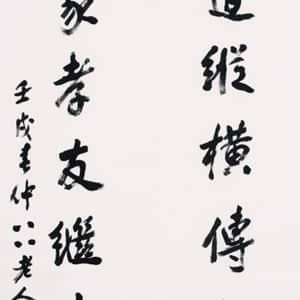 縱橫傳
家孝友繼
壬戌春仲八八老人